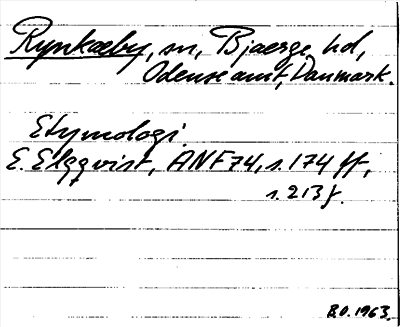 Rynkæby, sn, Bjaerge hd,
Odense amt, Danmark.
Etymologi
E. Elgqvist, ANF 74, s. 174 ff,
s. 213 f.
B.O. 1963.